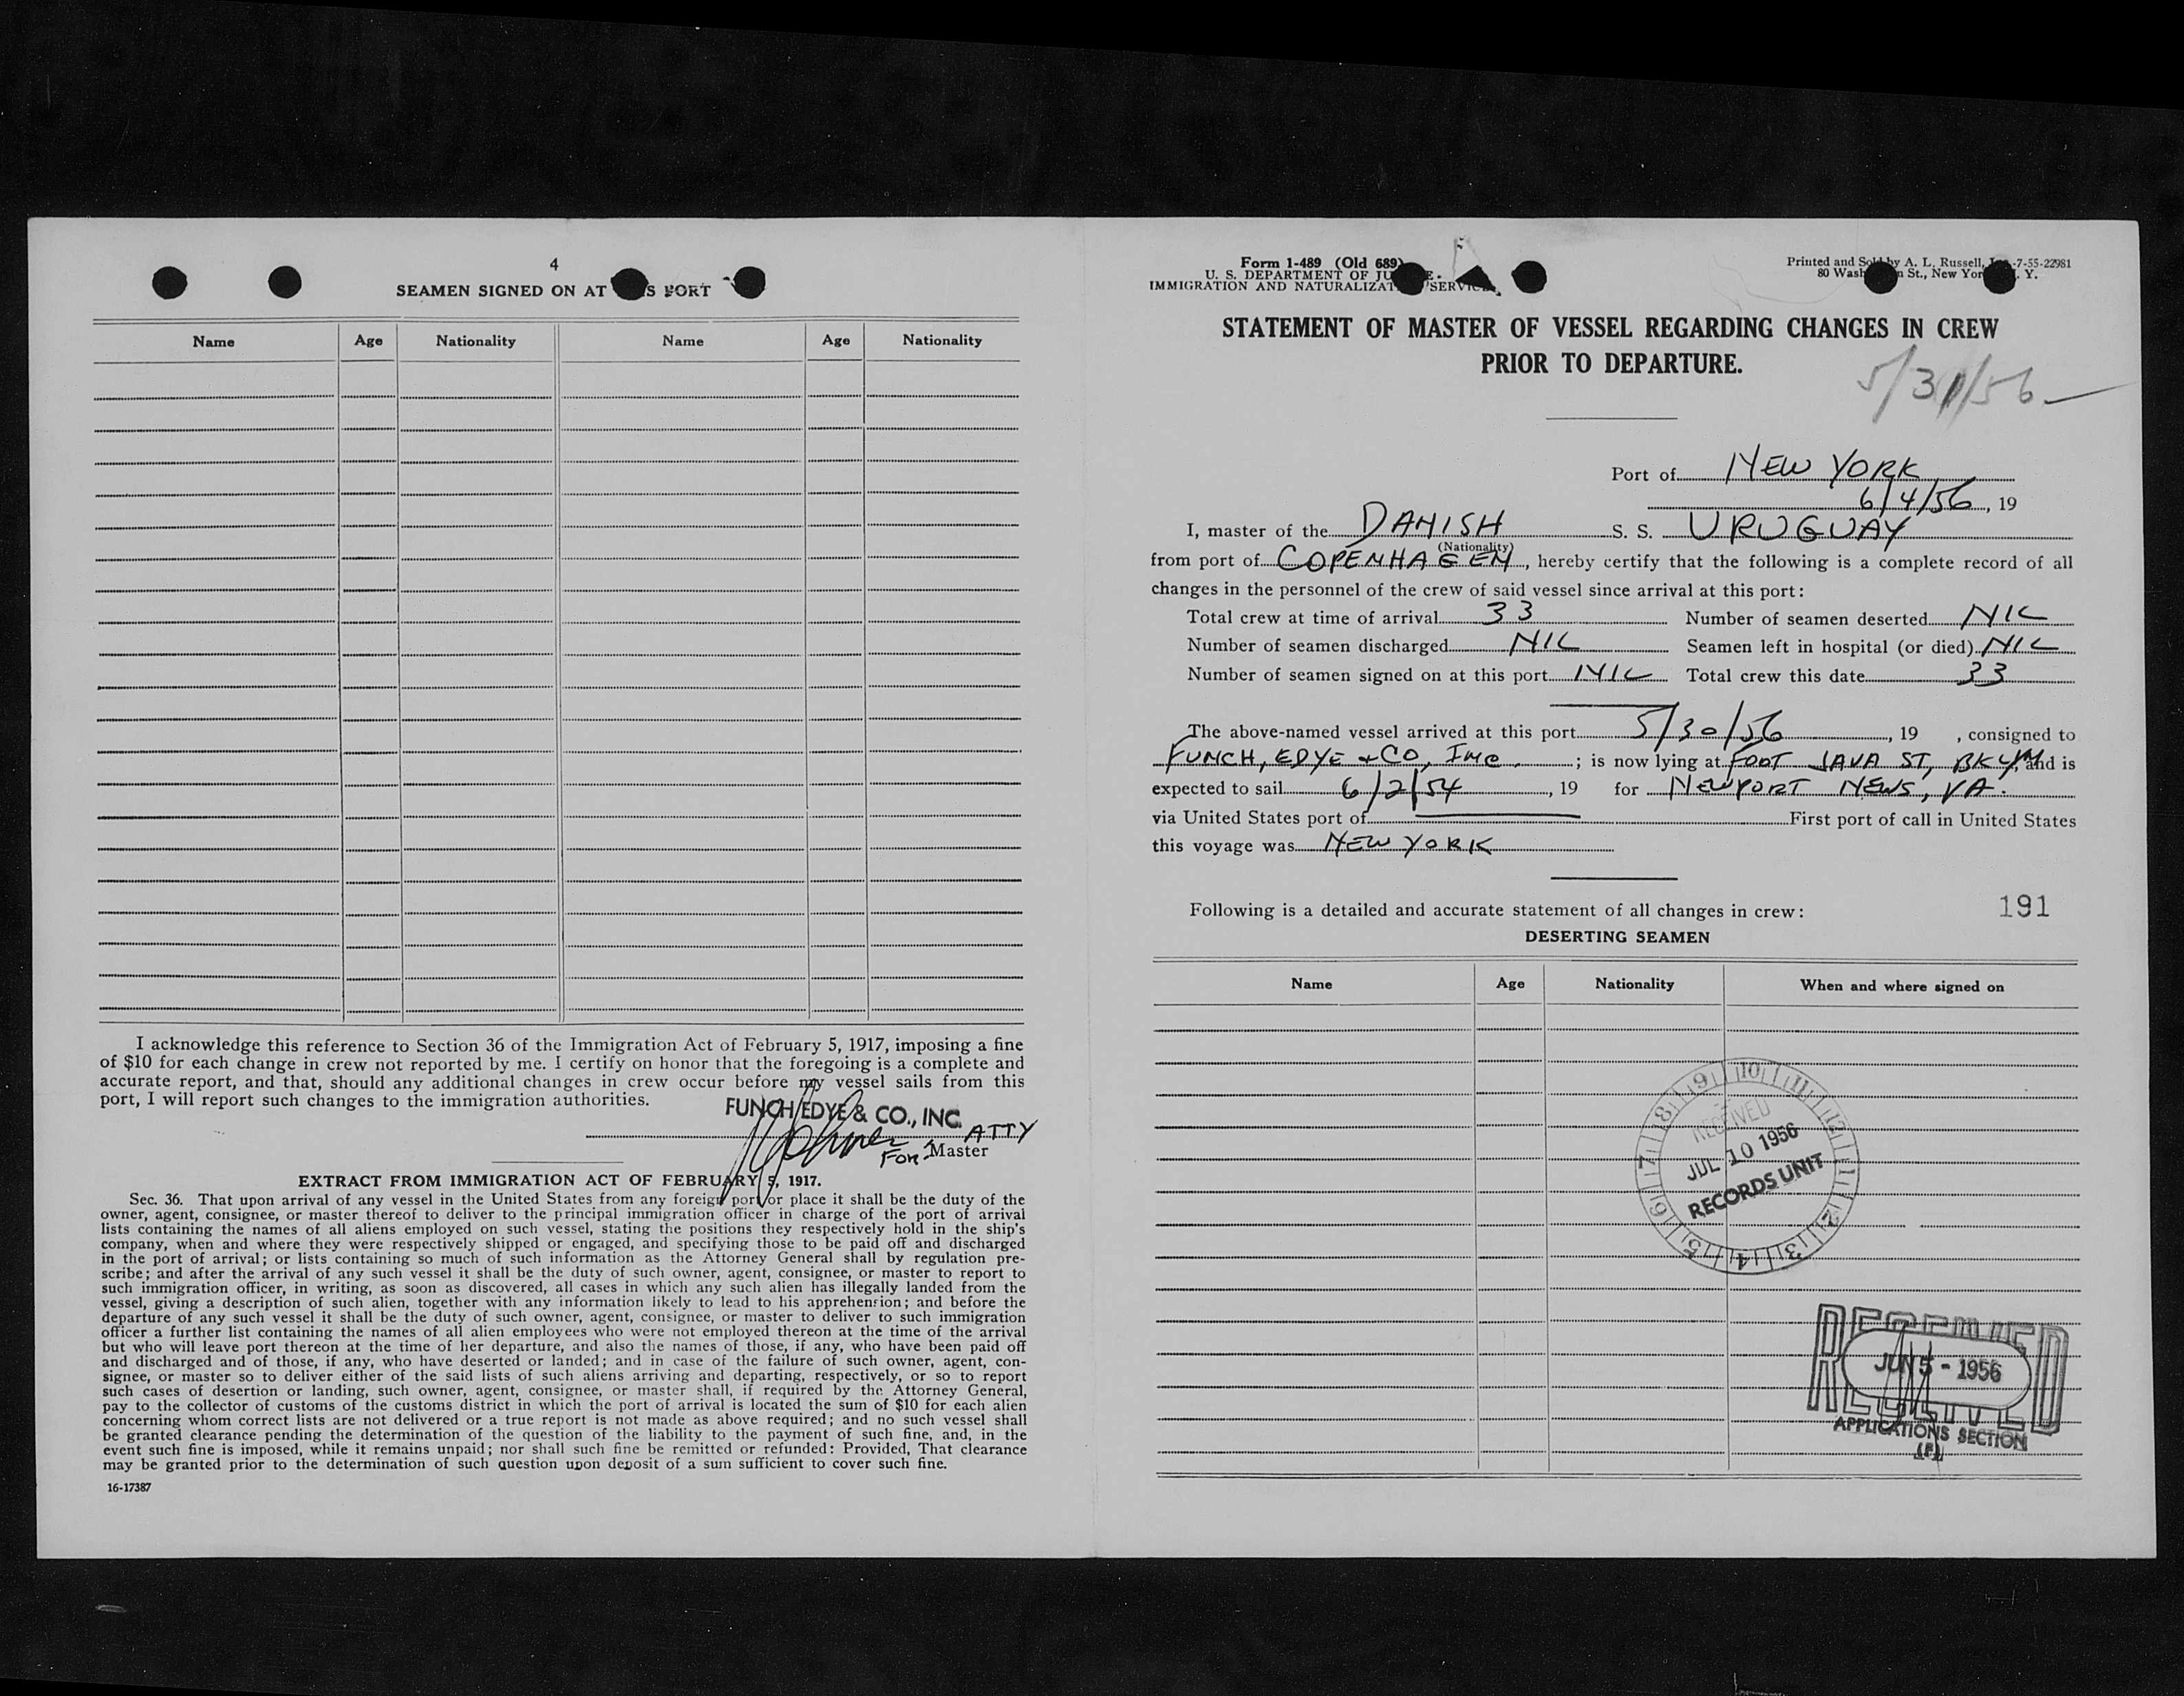 4
SEAMEN SIGNED ON AT S PORT
Name Age Nationality Name Age Nationality
I acknowledge this reference to Section 36 of the Immigration Act of February 5, 1917, imposing a fine
of $10 for each change in crew not reported by me. I certify on honor that the foregoing is a complete and
accurate report, and that, should any additional changes in crew occur before my vessel sails from this
port, I will report such changes to the immigration authorities.
FUNCH, EDYE & CO., INC.
ATTY
FOR Master
EXTRACT FROM IMMIGRATION ACT OF FEBRUARY 5, 1917.
Sec. 36. That upon arrival of any vessel in the United States from any foreign port or place it shall be the duty of the
owner, agent, consignee, or master thereof to deliver to the principal immigration officer in charge of the port of arrival
lists containing the names of all aliens employed on such vessel, stating the positions they respectively hold in the ship's
company, when and where they were respectively shipped or engaged, and specifying those to be paid off and discharged
in the port of arrival; or lists containing so much of such information as the Attorney General shall by regulation pre-
scribe; and after the arrival of any such vessel it shall be the duty of such owner, agent, consignee, or master to report to
such immigration officer, in writing, as soon as discovered, all cases in which any such alien has illegally landed from the
vessel, giving a description of such alien, together with any information likely to lead to his apprehension; and before the
departure of any such vessel it shall be the duty of such owner, agent, consignee, or master to deliver to such immigration
officer a further list containing the names of all alien employees who were not employed thereon at the time of the arrival
but who will leave port thereon at the time of her departure, and also the names of those, if any, who have been paid off
and discharged and of those, if any, who have deserted or landed; and in case of the failure of such owner, agent, con-
signee, or master so to deliver either of the said lists of such aliens arriving and departing, respectively, or so to report
such cases of desertion or landing, such owner, agent, consignee, or master shall, if required by the Attorney General,
pay to the collector of customs of the customs district in which the port of arrival is located the sum of $10 for each alien
concerning whom correct lists are not delivered or a true report is not made as above required; and no such vessel shall
be granted clearance pending the determination of the question of the liability to the payment of such fine, and, in the
event such fine is imposed, while it remains unpaid; nor shall such fine be remitted or refunded: Provided, That clearance
may be granted prior to the determination of such question upon deposit of a sum sufficient to cover such fine.
16-17387
Form 1-489 (Old 689)
U. S. DEPARTMENT OF JU E
IMMIGRATION AND NATURALIZAT SERVICE
Printed and Sold by A. L. Russell, Inc.-7-55-22981
80 Wash n St., New Yor . Y.
STATEMENT OF MASTER OF VESSEL REGARDING CHANGES IN CREW
PRIOR TO DEPARTURE.
5/31/56
Port of NEW YORK
6/4/56, 19
I, master of the DANISH S. S. URUGUAY
(Nationality)
from port of COPENHAGEN, hereby certify that the following is a complete record of all
changes in the personnel of the crew of said vessel since arrival at this port:
Total crew at time of arrival 33 Number of seamen deserted NIL
Number of seamen discharged NIL Seamen left in hospital (or died) NIL
Number of seamen signed on at this port NIL Total crew this date 33
The above-named vessel arrived at this port 5/30/56, 19 , consigned to
FUNCH, EDYE & CO, INC.; is now lying at FOOT JAVA ST, BKLYN, and is
expected to sail 6/2/54, 19 for NEWPORT NEWS, VA.
via United States port of First port of call in United States
this voyage was NEW YORK
Following is a detailed and accurate statement of all changes in crew:
191
DESERTING SEAMEN
Name Age Nationality When and where signed on
9 10 11 12 1 2 3 4 5 6 7 8
RECEIVED
JUL 10 1956
RECORDS UNIT
RECEIVED
JUN 5 - 1956
APPLICATIONS SECTION